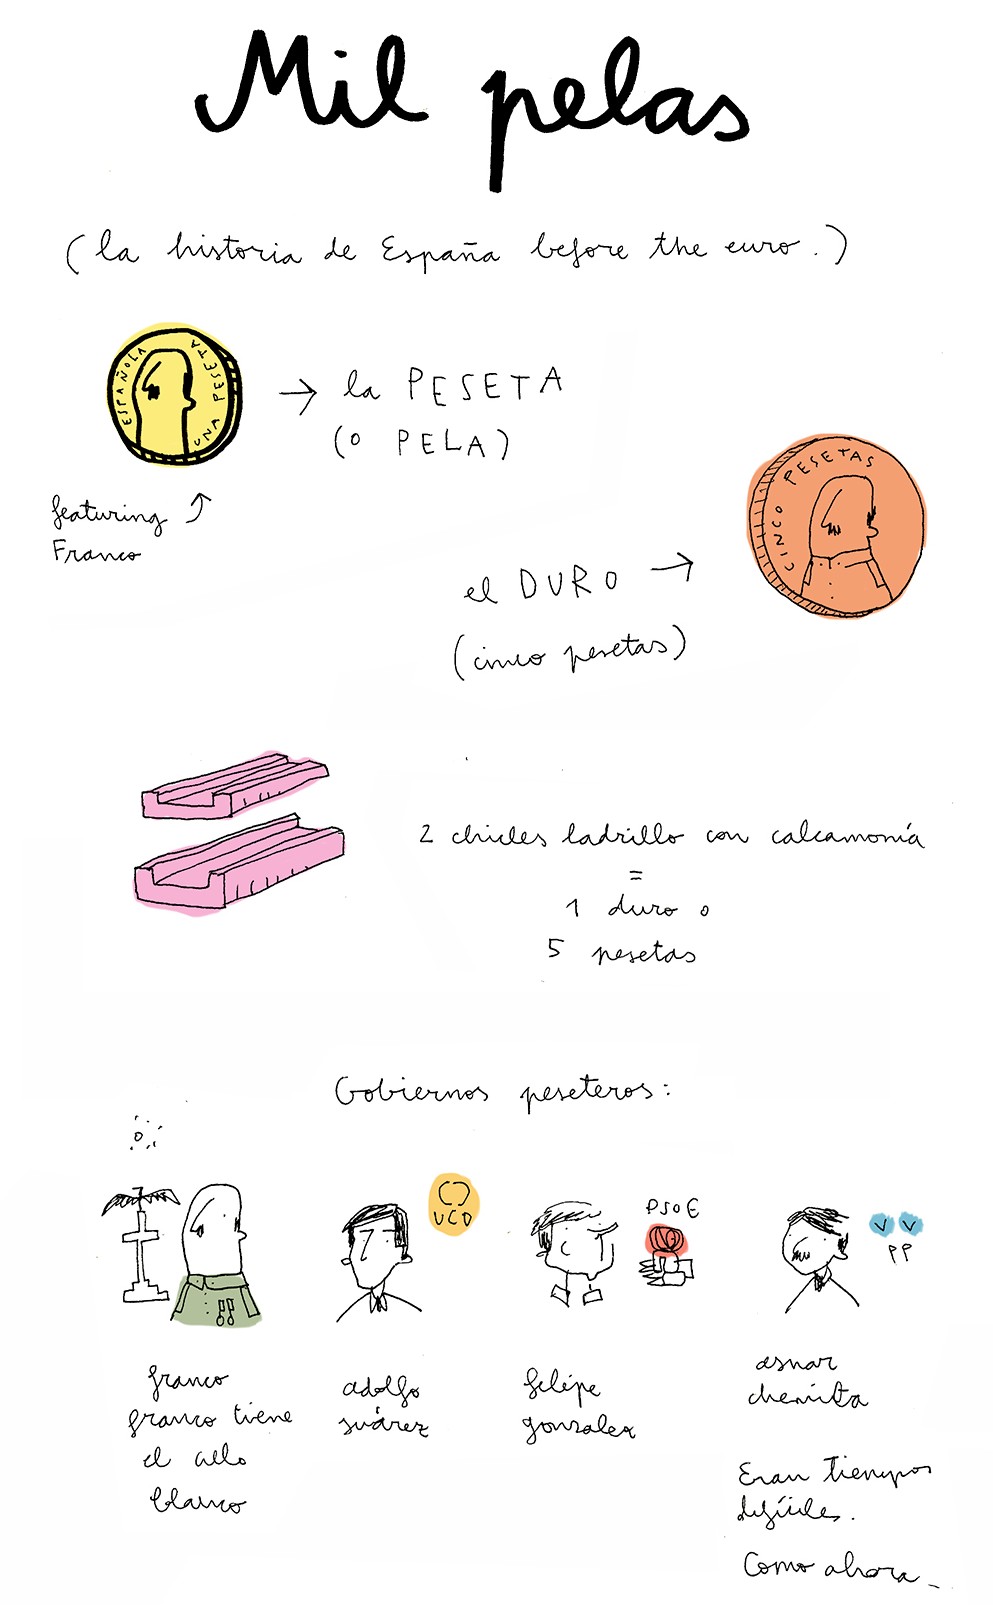 Mil pelas
(la historia de España before the euro.)
ESPAÑOLA
UNA PESETA
→ la PESETA
(o PELA)
featuring
Franco
CINCO PESETAS
el DURO →
(cinco pesetas)
2 chicles ladrillo con calcamonía
=
1 duro o
5 pesetas
Gobiernos peseteros:
UCD
PSOE
PP
franco
franco tiene
el culo
blanco
adolfo
suárez
felipe
gonzalez
asnar
chemita
Eran tiempos
difíciles.
Como ahora_